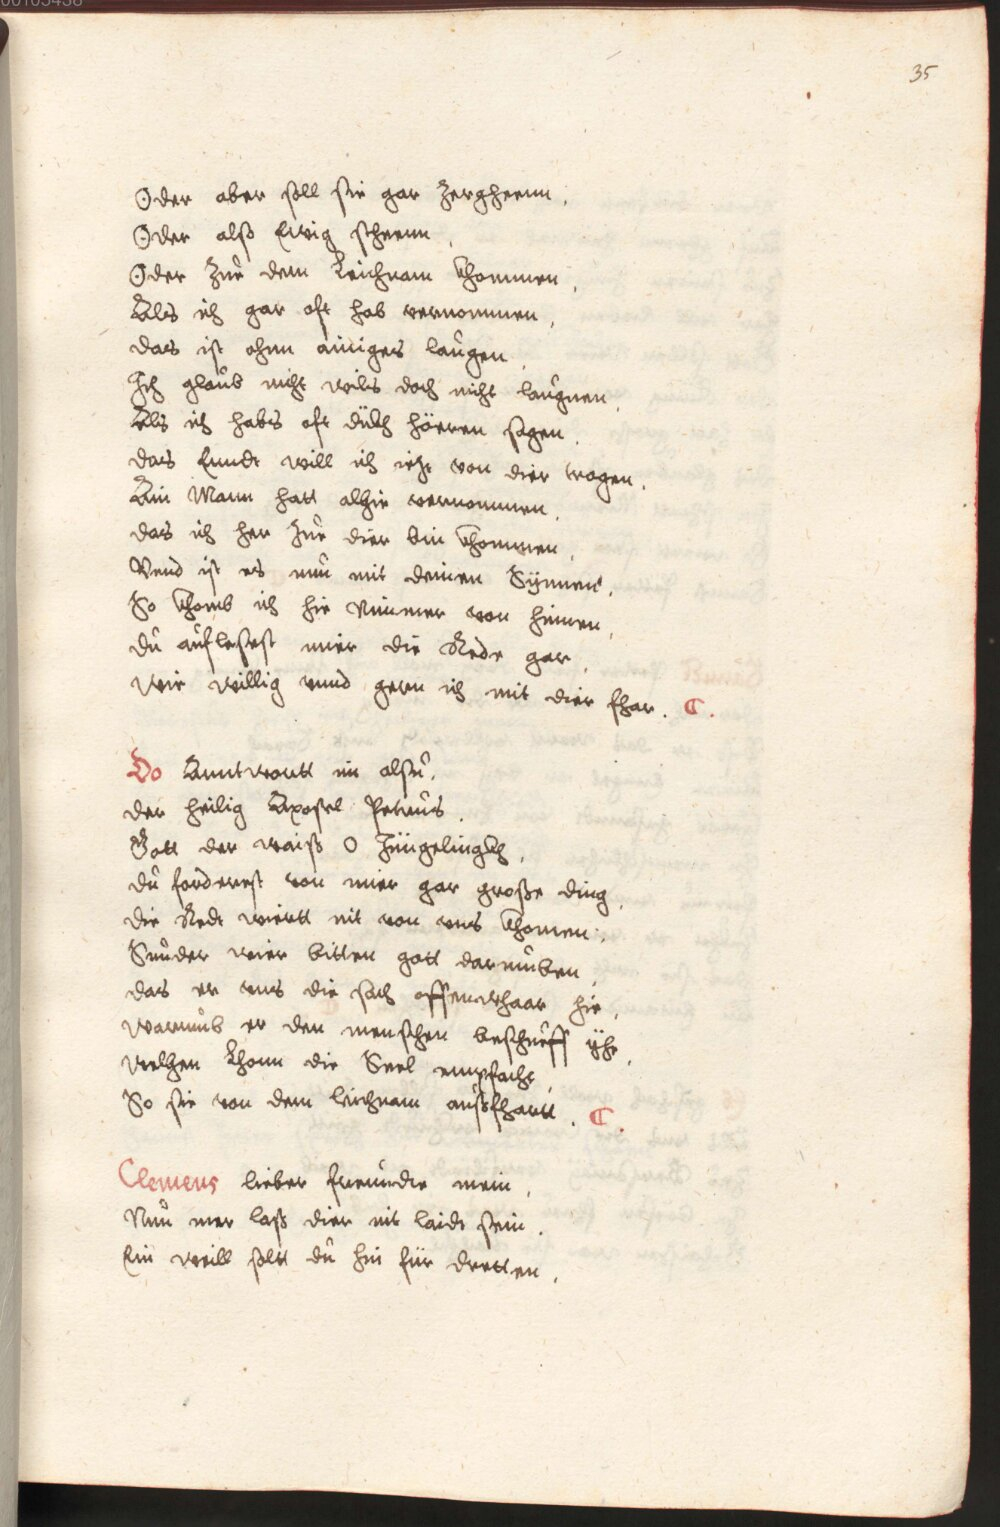 00103438
35
Oder aber soll sie gar Zergheenn,
Oder alß Ewig steenn,
Oder Zue dem Leichnam khommen,
Als ich gar oft hab vernommen,
das ist ohnn ainiges laugen,
Ich glaub nicht wils doch nicht laugnen,
Als ich habs oft dickh höeren sagen.
das Ennde will ich ieze von dier tragen.
Ain Mann hatt alhie vernommen,
das ich her Zue dier bin khommen,
Vnnd ist es nun mit deinen Synnen,
So khomb ich hie Nimmer von hinnen,
du auflesest mier die Rede gar,
wie willig vnnd gern ich mit dier fhar. C.
Do Anntwortt im alsu,
der heilig Apostel Petrus,
Gott der waiß O Jüngelingkh,
du forderest von mier gar große ding,
die Redt wiertt nit von vns khomen,
Sunder wier bitten gott darumben,
das er vns die sach offennbhaar hie,
warumb er den menschen beschueff yhe,
welhen khonn die Seel empfacht,
So sie von dem leichnam außfhartt. C.
Clemens lieber freundte mein,
Nun mer laß dier nit laidt sein.
Ein weill soltt du hin für dretten,